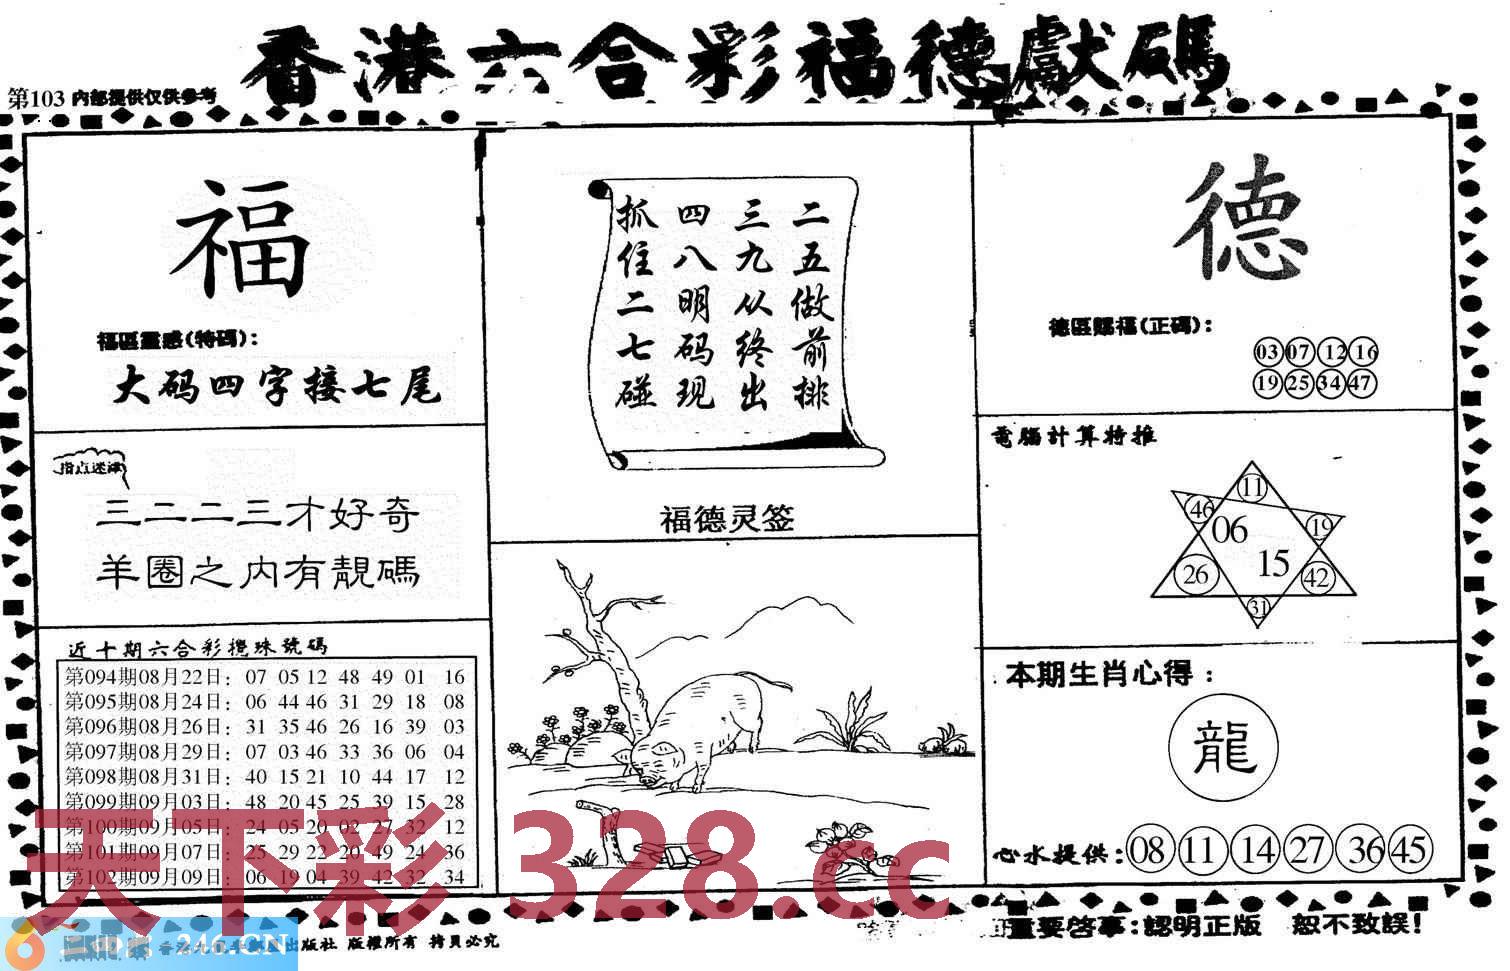 香港六合彩福德獻碼
第103 内部提供仅供参考
福
福區靈感(特碼):
大码四字接七尾
指点迷津
三二二三才好奇
羊圈之内有靚碼
近十期六合彩攪珠號碼
第094期08月22日: 07 05 12 48 49 01 16
第095期08月24日: 06 44 46 31 29 18 08
第096期08月26日: 31 35 46 26 16 39 03
第097期08月29日: 07 03 46 33 36 06 04
第098期08月31日: 40 15 21 10 44 17 12
第099期09月03日: 48 20 45 25 39 15 28
第100期09月05日: 24 05 20 02 27 32 12
第101期09月07日: 25 29 22 20 49 24 36
第102期09月09日: 06 19 04 39 42 32 34
二五做前排
三九从终出
四八明码现
抓住二七碰
福德灵签
德
德區賜福(正碼):
03 07 12 16
19 25 34 47
電腦計算特推
11
46
19
06
15
26
42
31
本期生肖心得:
龍
心水提供: 08 11 14 27 36 45
天下彩 328.cc
246.CN
出版社 版權所有 拷貝必究
重要啓事:認明正版 恕不致誤!